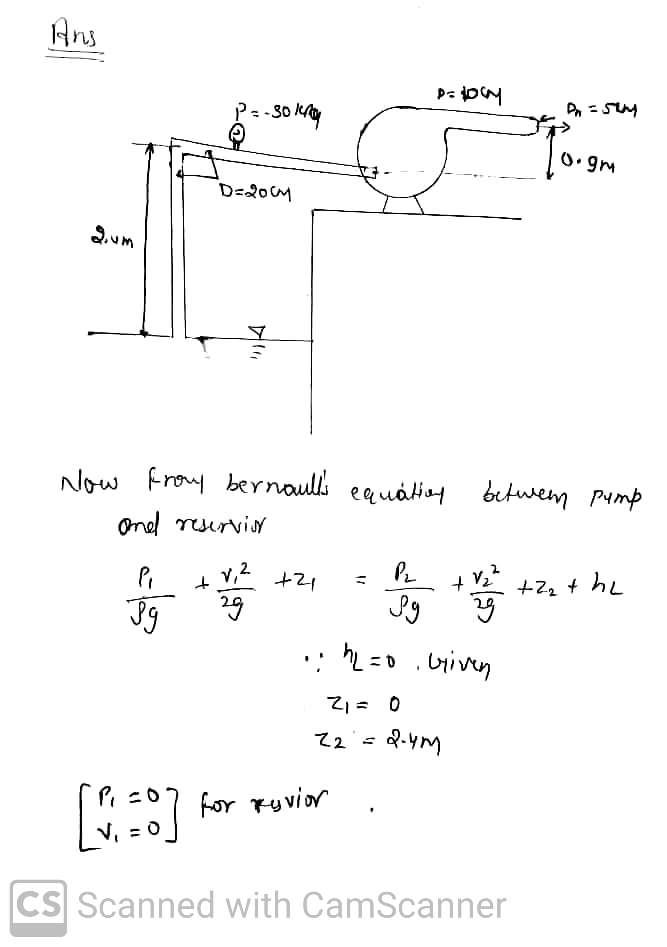 Ans
P = -30 kPa
D = 10cm
Dn = 5cm
0.9m
D=20cm
2.4m
Now from bernaulli's equation between pump
and reservior
P₁/ρg + V₁²/2g + Z₁ = P₂/ρg + V₂²/2g + Z₂ + hL
∵ hL = 0 , Given
Z₁ = 0
Z₂ = 2.4m
[P₁ = 0
V₁ = 0] for
CS Scanned with CamScanner